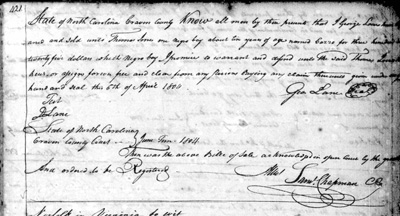 421
State of North Carolina Craven County Know all men by these present that I George Lane have
and sold unto Thomas one negro boy about ten years of age named for three hundred
twenty five dollars which Negro boy I promise to warrant and defend unto the said Thomas
heirs or assigns forever free and clear from any Person laying any claim under my
hand and seal this 6th of April 1804
Geo Lane
Test
Lane
State of North Carolina
Craven County Court June Term 1804
Then was the above Bill of sale acknowledged in open Court by the
and ordered to be Registered
Saml Chapman
Virginia to wit